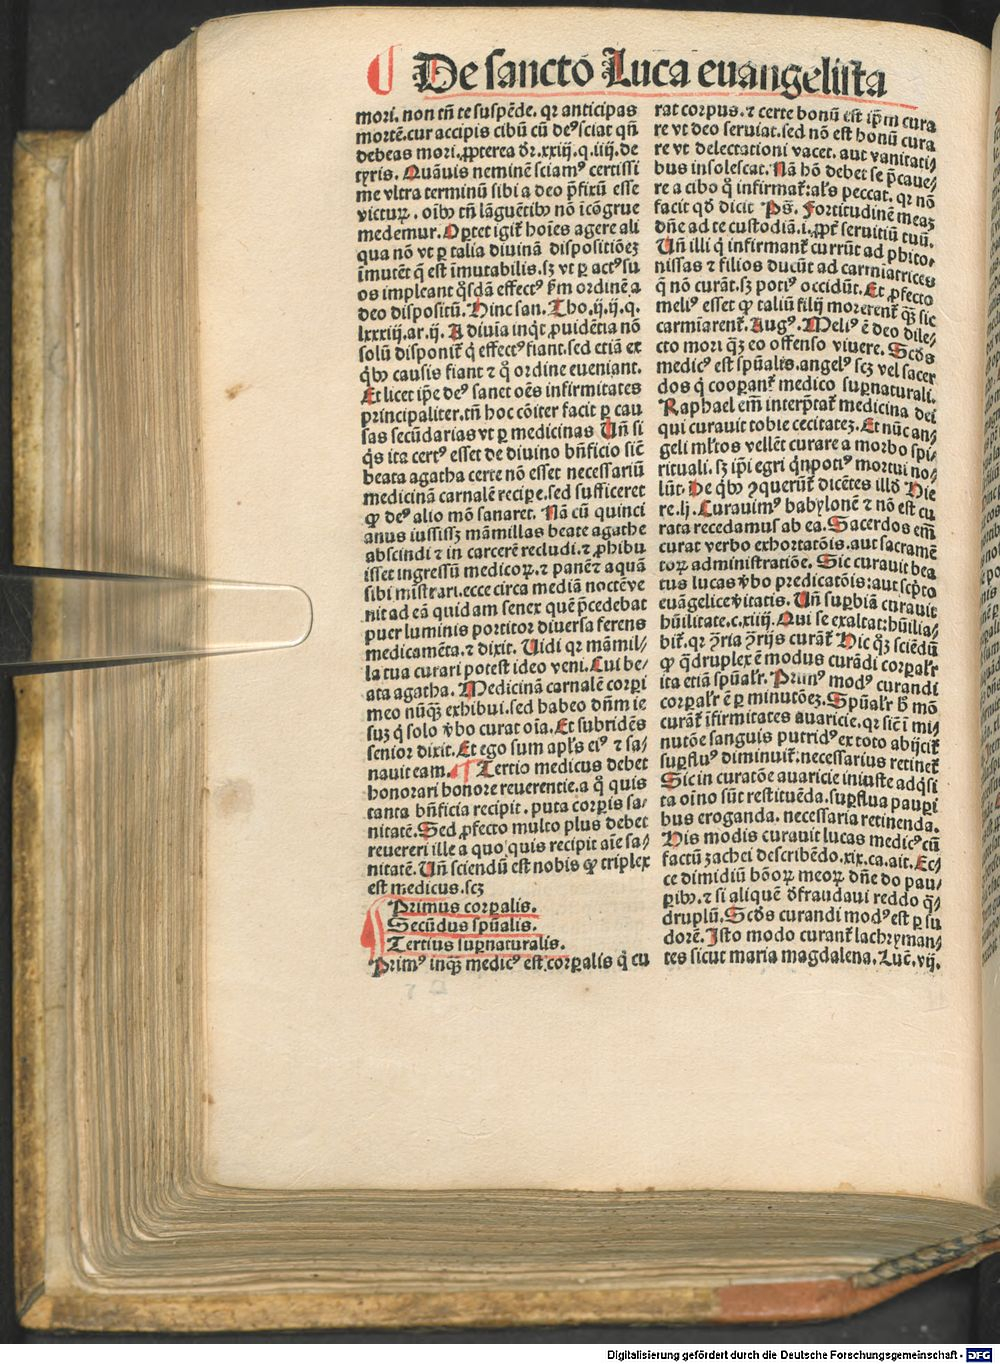 De sancto Luca euangelista
mori. non tñ te suspẽde. qꝛ anticipas
mortẽ. cur accipis cibũ cũ deꝰ sciat qñ
debeas mori. ꝓpterea dꝛ. xxiij. q. iiij. de
tyris. Quãuis neminẽ sciamꝰ certissi
me vltra terminũ sibi a deo p̃fixũ esse
victuꝝ. oĩbꝰ tñ lãguẽtibꝰ nõ ĩcõgrue
medemur. Oꝑtet igit̃ hoĩes agere ali
qua nõ vt ꝑ talia diuinã dispositiõeꝫ
ĩmutẽt q̃ est ĩmutabilis. sꝫ vt ꝑ actꝰ su
os impleant q̃sdã effectꝰ ẜm ordinẽ a
deo dispositũ. Hinc san. Tho. ij. ij. q.
lxxxiij. ar. ij. A diuia inq̇t ꝓuidẽtia nõ
solũ disponit̃ q̇ effectꝰ fiant. sed etiã ex
q̇bꝰ causis fiant ⁊ q̊ ordine eueniant.
Et licet ip̃e deꝰ sanct oẽs infirmitates
principaliter. tñ hoc cõiter facit ꝑ cau
sas secũdarias vt ꝑ medicinas Uñ si
q̇s ita certꝰ esset de diuino bñficio siẽ
beata agatha certe nõ esset necessariũ
medicinã carnalẽ recipe. sed sufficeret
ꝙ deꝰ alio mõ sanaret. Nã cũ quinci
anus iussissꝫ mãmillas beate agathe
abscindi ⁊ in carcerẽ recludi. ⁊ ꝓhibu
isset ingressũ medicoꝝ. ⁊ panẽ ⁊ aquã
sibi mĩstrari. ecce circa mediã noctẽ ve
nit ad eã quidam senex quẽ p̃cedebat
puer luminis portitor diuersa ferens
medicamẽta. ⁊ dixit. Uidi qꝛ mãmil/
la tua curari potest ideo veni. Cui be/
ata agatha. Medicinã carnalẽ corpi
meo nũq̃ꝫ exhibui. sed habeo dñm ie
suꝫ q̇ solo v̓bo curat oĩa. Et subridẽs
senior dixit. Et ego sum apl̃s eiꝰ ⁊ sa/
nauit eam. Tertio medicus debet
honorari honore reuerentie. a q̊ quis
tanta bñficia recipit. puta corꝑis sa/
nitatẽ. Sed ꝓfecto multo plus debet
reuereri ille a quo quis recipit aĩe sa/
nitatẽ. Uñ sciendũ est nobis ꝙ triplex
est medicus. scꝫ
Primus corꝑalis.
Secũdus sp̃ualis.
Tertius suꝑnaturalis.
Primꝰ inq̃ꝫ medicꝰ est corꝑalis q̇ cu
rat corpus. ⁊ certe bonũ est ip̃m cura
re vt deo seruiat. sed nõ est bonũ cura
re vt delectationi vacet. aut vanitati/
bus insolescat. Nã hõ debet se p̃caue/
re a cibo q̊ infirmat̃: al̃s peccat. qꝛ nõ
facit qd̓ dicit Ps̃. Fortitudinẽ meaꝫ
dñe ad te custodiã. i. ꝓpt̃ seruitiũ tuũ.
Uñ illi q̇ infirmant̃ currũt ad phito/
nissas ⁊ filios ducũt ad carmĩatrices
q̇ nõ curãt. sꝫ potiꝰ occidũt. Et ꝓfecto
meliꝰ esset ꝙ taliũ filij morerent̃ q̃ꝫ sic
carmĩarent̃. Augꝰ. Meliꝰ ẽ deo dile/
cto mori q̃ꝫ eo offenso viuere. Scd̓s
medicꝰ est sp̃ualis. angelꝰ scꝫ vel sacer
dos q̇ cooꝑant̃ medico suꝑnaturali.
Raphael em̃ interp̃tat̃ medicina dei
qui curauit tobie cecitateꝫ. Et nũc an/
geli ml̃tos vellẽt curare a morbo spi/
rituali. sꝫ ip̃i egri q̇npotiꝰ mortui no/
lũt. De q̇bꝰ ꝯquerũt̃ dicẽtes illd̓ Hie
re. lj. Curauimꝰ babylonẽ ⁊ nõ est cu
rata recedamus ab ea. Sacerdos em̃
curat verbo exhortatõis. aut sacramẽ
toꝝ administratiõe. Sic curauit bea
tus lucas v̓bo predicatõis: aut sc̃pto
euãgelice v̓itatis. Uñ suꝑbiã curauit
hũilitate. c. xiiij. Qui se exaltat: hũilia/
bit̃. qꝛ ꝯ̃ria ꝯ̃rijs curãt̃. Hic q̃ꝫ sciẽdũ
ꝙ q̃druplex ẽ modus curãdi corꝑalr̃
ita etiã sp̃ualr̃. Primꝰ modꝰ curandi
corꝑalr̃ ẽ ꝑ minutõeꝫ. Sp̃ualr̃ h̓ mõ
curãt̃ ĩfirmitates auaricie. qꝛ siẽ ĩ mi/
nutõe sanguis putridꝰ ex toto abijcit̃
suꝑfluꝰ diminuit̃: necessarius retinet̃
Sic in curatõe auaricie iniuste adq̇si
ta oĩno sũt restituẽda. suꝑflua pauꝑi
bus eroganda. necessaria retinenda.
His modis curauit lucas medicꝰ cũ
factũ zachei describẽdo. xix. ca. ait. Ec/
ce dimidiũ bõoꝝ meoꝝ dñe do pau/
ꝑibꝰ. ⁊ si aliquẽ d̓fraudaui reddo q̃/
druplũ. Scd̓s curandi modꝰ est ꝑ su
dorẽ. Isto modo curant̃ lachryman/
tes sicut maria magdalena. Luẽ. vij.
Digitalisierung gefördert durch die Deutsche Forschungsgemeinschaft - DFG